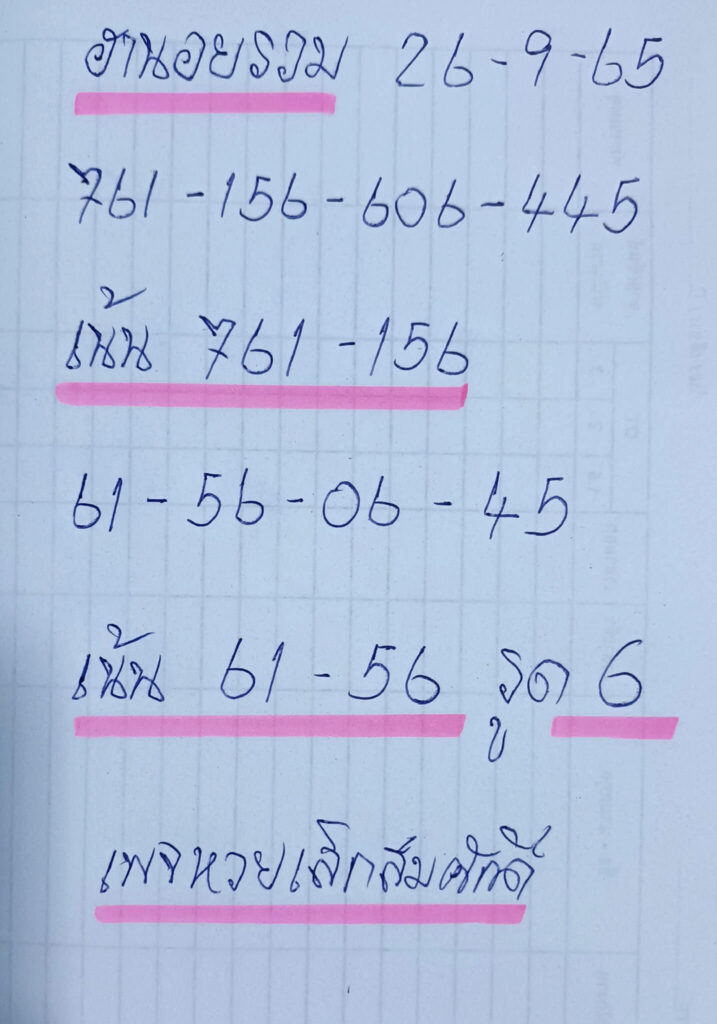 ฮานอยรวม 26-9-65
761-156-606-445
เน้น 761-156
61-56-06-45
เน้น 61-56 รูด 6
เพจหวยเล็กสมศักดิ์